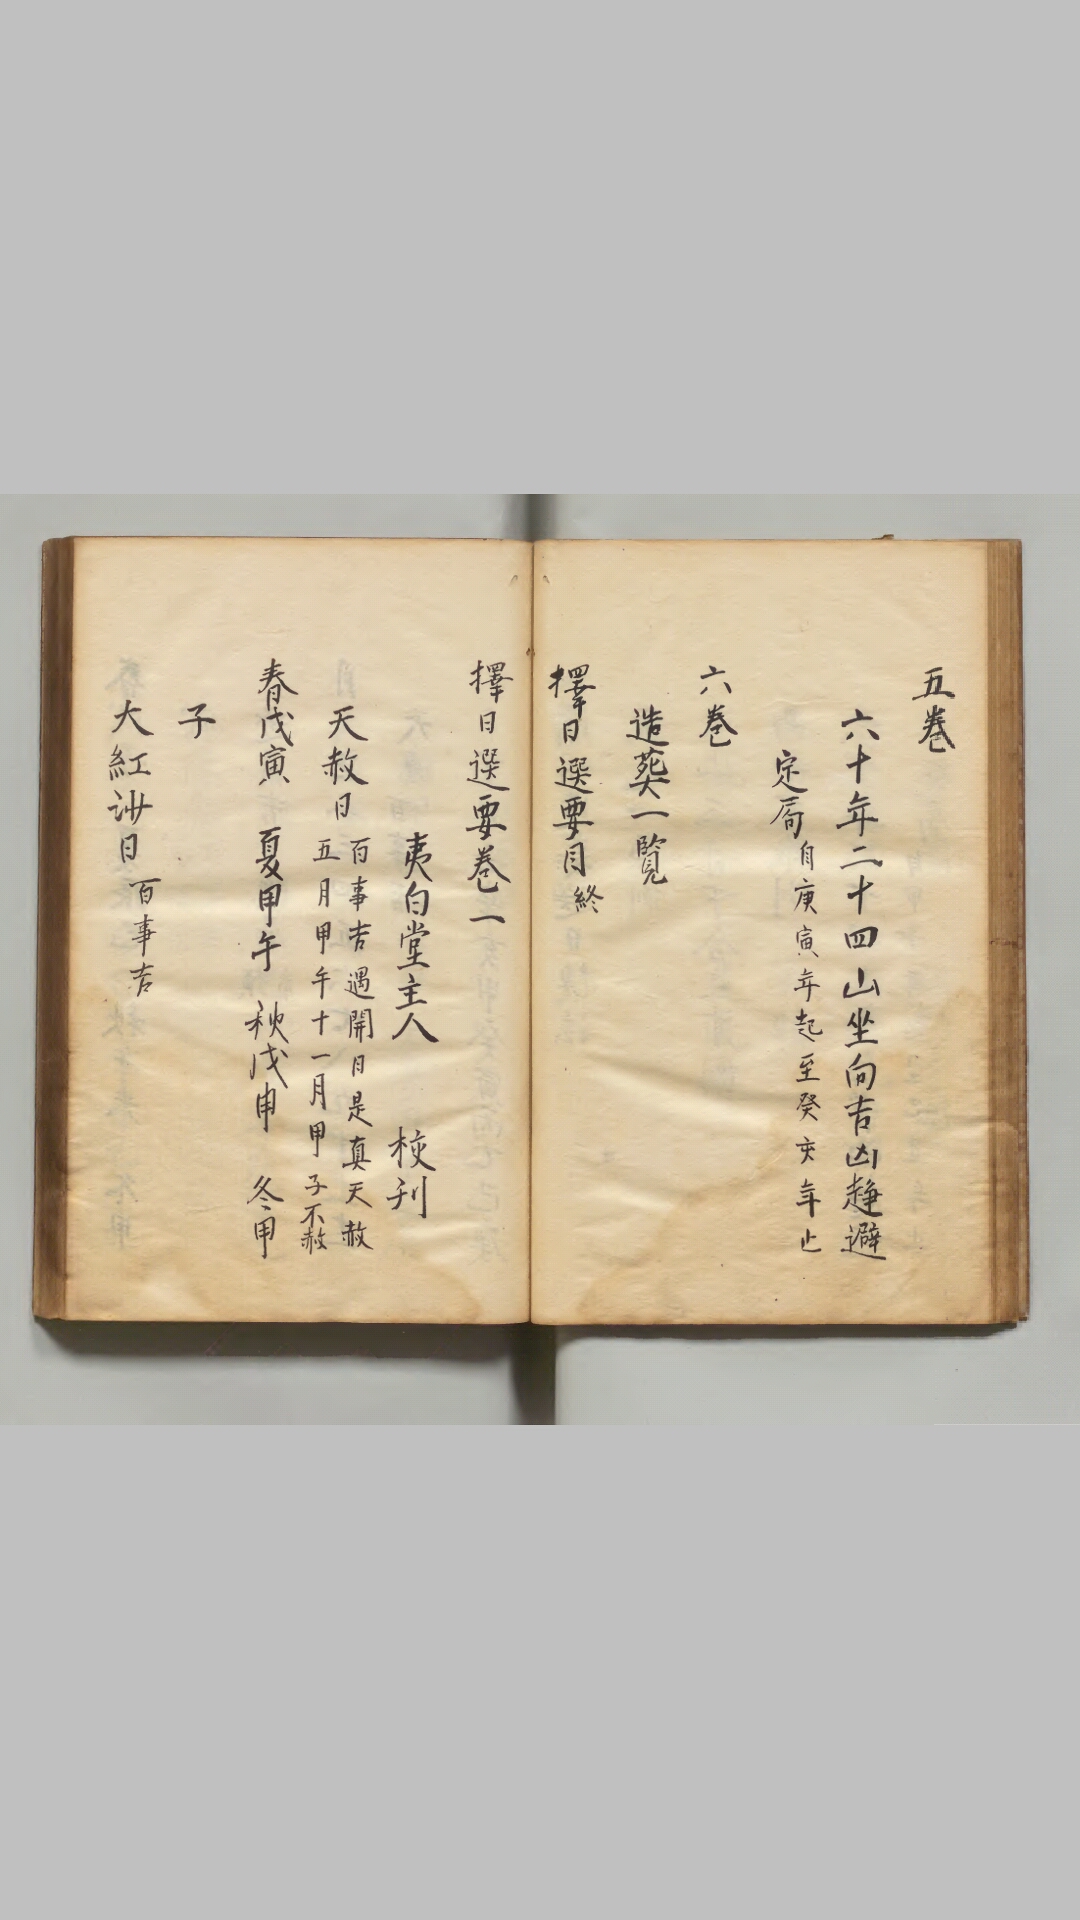 五巻
六十年二十四山坐向吉凶趋避
定局自庚寅年起至癸亥年止
六巻
造葬一覧
擇日選要目終
擇日選要巻一
夷白堂主人 校刋
天赦日百事吉遇開日是真天赦
五月甲午十一月甲子不赦
春戊寅 夏甲午 秋戊申 冬甲
子
大紅沙日百事吉